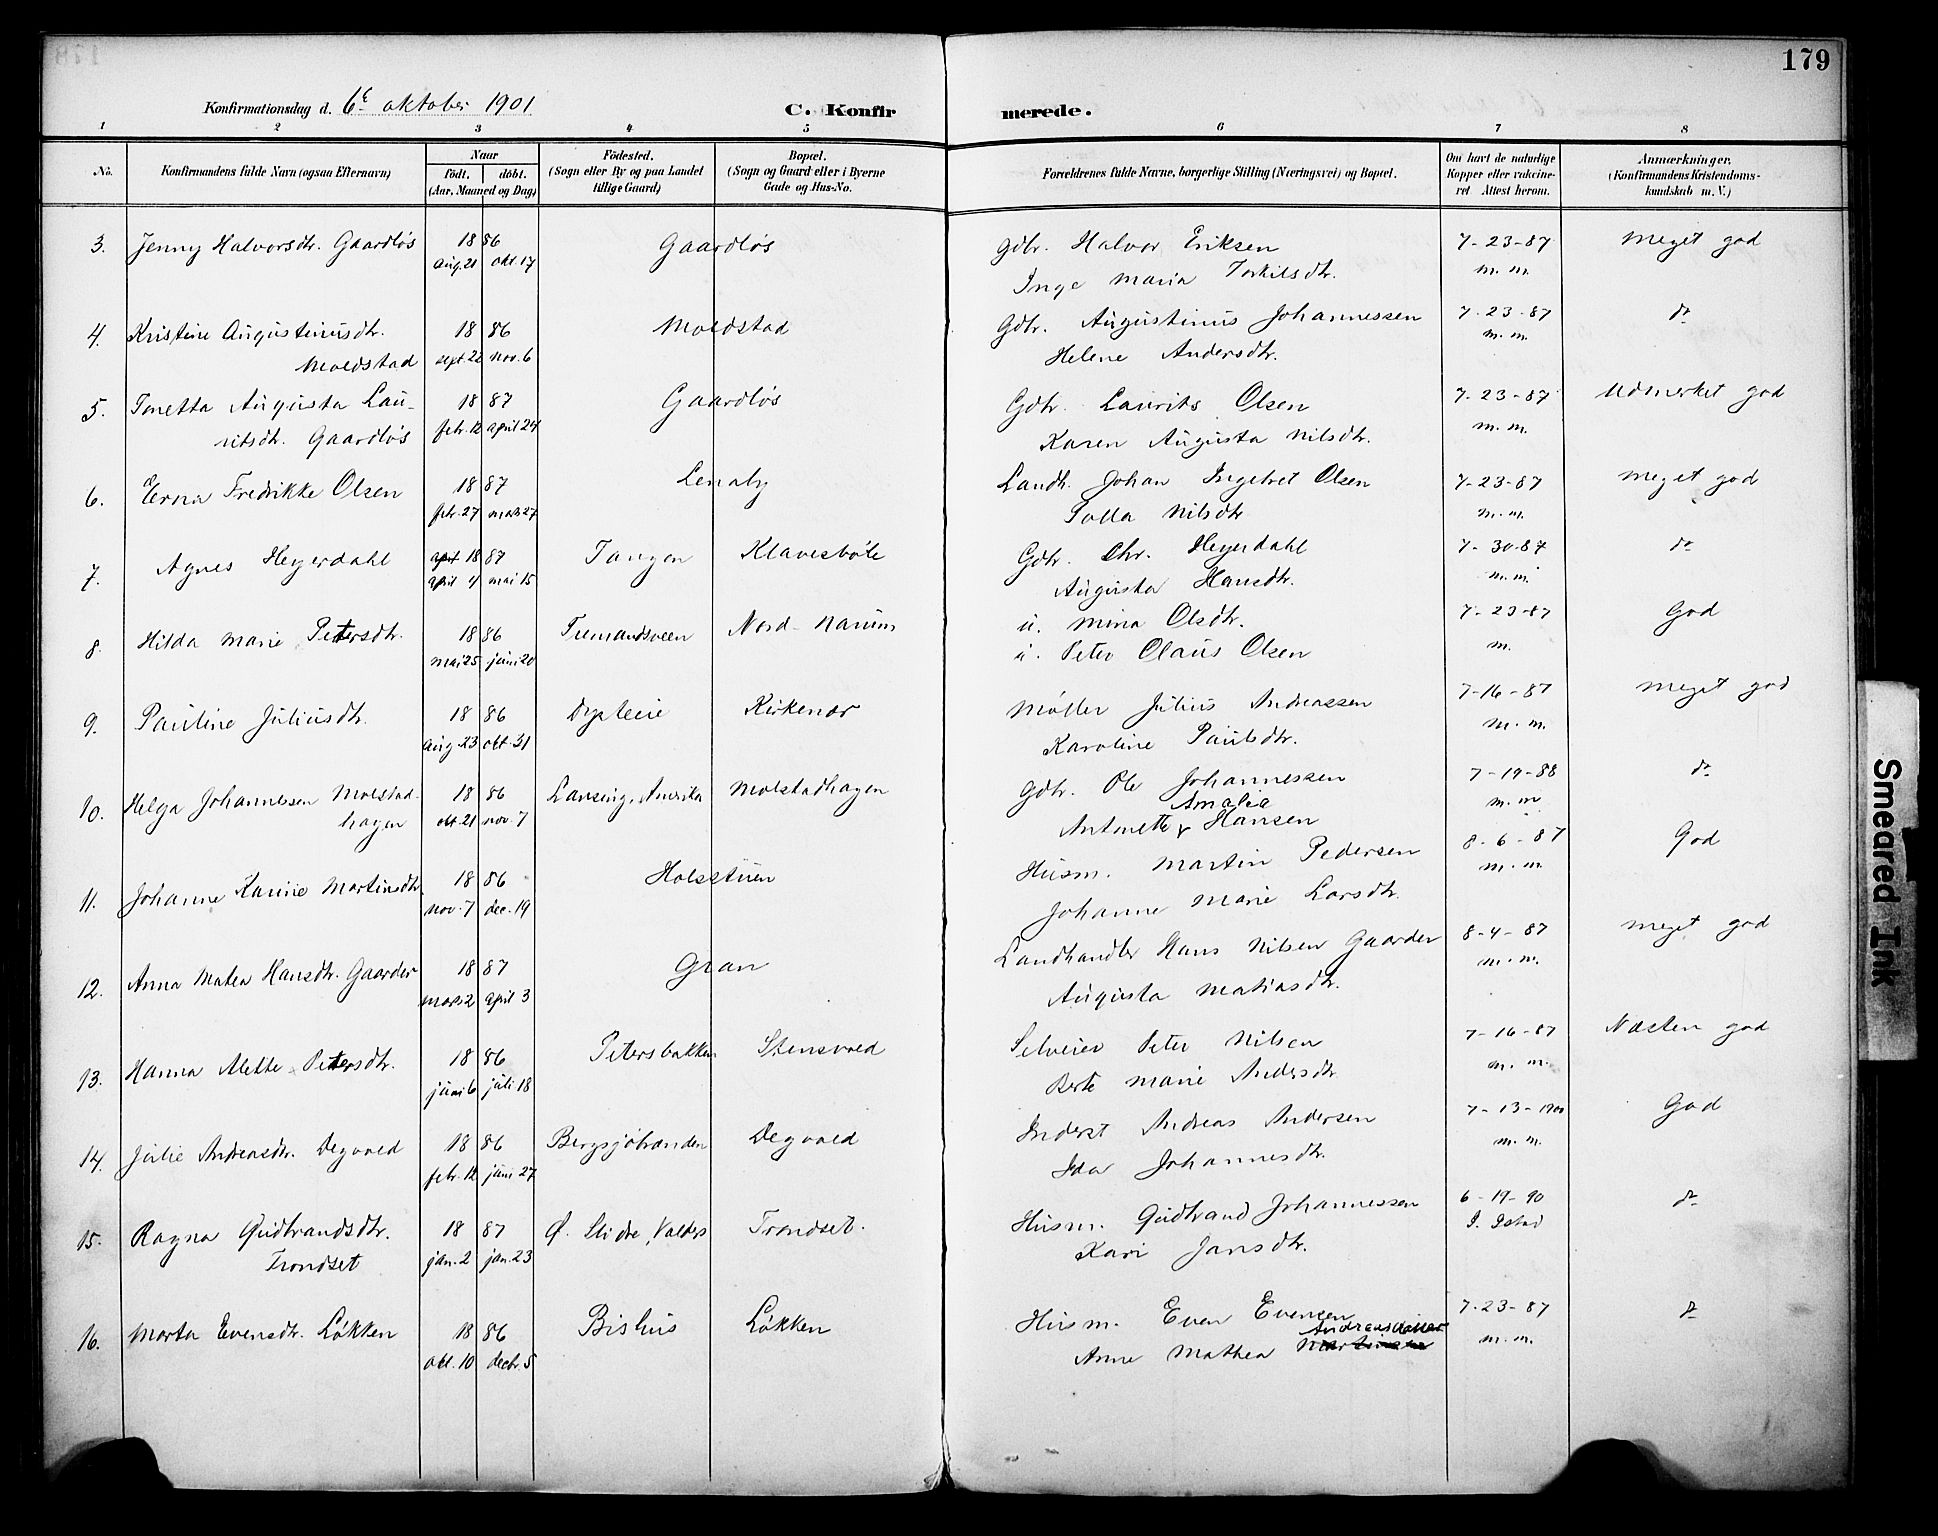 179
Konfirmationsdag d. 6te oktober 1901
C. Konfir merede.
1 2 3 4 5 6 7 8
No. Konfirmandens fulde Navn (ogsaa Efternavn) Naar født. døbt. (Aar, Maaned og Dag) Fødested. (Sogn eller By og paa Landet tillige Gaard) Bopæl. (Sogn og Gaard eller i Byerne Gade og Hus-No. Forældrenes fulde Navne, borgerlige Stilling (Næringsvei) og Bopæl. Om havt de naturlige Kopper eller vakcineret Attest herom. Anmærkninger. (Konfirmandens Kristendomskundskab m. V.)
3. Jenny Halvorsdtr. Gaardløs 1886 Gaardløs Gdbr. Halvor Eriksen 7-23-87 Meget god
aug. 21 okt. 17 Inge Maria Torkilsdtr. m. m.
4. Kristine Augustinusdtr. 1886 Moldstad Gdbr. Augustinus Johannessen 7-23-87 do
Moldstad sept. 22 nov. 6 Helene Andersdtr. m. m.
5. Tonetta Augusta Lau- 1887 Gaardløs Gdbr. Laurits Olsen 7-23-87 Udmerket god
ritsdtr. Gaardløs febr. 12 april 24 Karen Augusta Nilsdtr. m. m.
6. Erna Fredrikke Olsen 1887 Lenaby Landh. Johan Ingebret Olsen 7-23-87 Meget god
febr. 27 mars 27 Polla Nilsdtr m. m.
7. Agnes Heyerdahl 1887 Tangen Klavesbøle Gdbr. Chr. Heyerdahl 7-30-87 do
april 4 mai 15 Augusta Hansdtr. m. m.
8. Hilda Marie Petersdtr. 1886 Tremandsveen Nord-Narum u. Mina Olsdtr. 7-23-87 God
mai 25 juni 20 u. Peter Claus Olsen m.
9. Pauline Juliusdtr. 1886 Kirkenær Møller Julius Andreassen 7-16-87 Meget god
aug. 23 okt. 31 Karoline Paulsdtr. m. m.
10. Helga Johannessen Molstad- 1886 Lansing, Amerika Molstadhagen Gdbr. Ole Johannessen 7-19-88 do
hagen okt. 21 nov. 7 Antonette Amalia Hansen m. m
11. Johanne Karine Martinsdtr. 1886 Holsstuen Husm. Martin Pedersen 8-6-87 God
nov. 7 dec. 19 Johanne Marie Larsdtr. m. m.
12. Anna Matea Hansdtr. Gaarder 1887 Gran Landhandler Hans Nilsen Gaarder 8-4-87 meget god
mars 2 april 3 Augusta Matiasdtr. m. m.
13. Hanna Alette Petersdtr. 1886 Petersbakken Stensvold Selveier Peter Nilsen 7-16-87 Næsten god
juni 6 juli 18 Berte Marie Andersdtr m. m.
14. Julie Andreasdtr. Degvold 1886 Bergsjøbranden Degvold Inderst Andreas Andersen 7-13-1900 God
febr. 12 juni 27 Ida Johannesdtr. m. m.
15. Ragna Gudbrandsdtr. 1887 Ø. Slidre, Valders Trondset. Husm. Gudbrand Johannessen 6-19-90 do
Trondset jan. 2 jan. 23 Kari Jansdtr.
16. Marta Evensdtr. Løkken 1886 Bislius Løkken Husm. Even Evensen 7-23-87 do
okt. 10 decbr. 5 Anne Mathea Andreasdatter m. m.
Smeared Ink